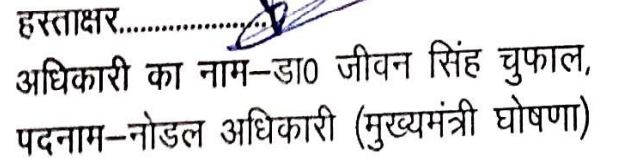 हस्ताक्षर......................
अधिकारी का नाम–डा0 जीवन सिंह चुफाल,
पदनाम–नोडल अधिकारी (मुख्यमंत्री घोषणा)